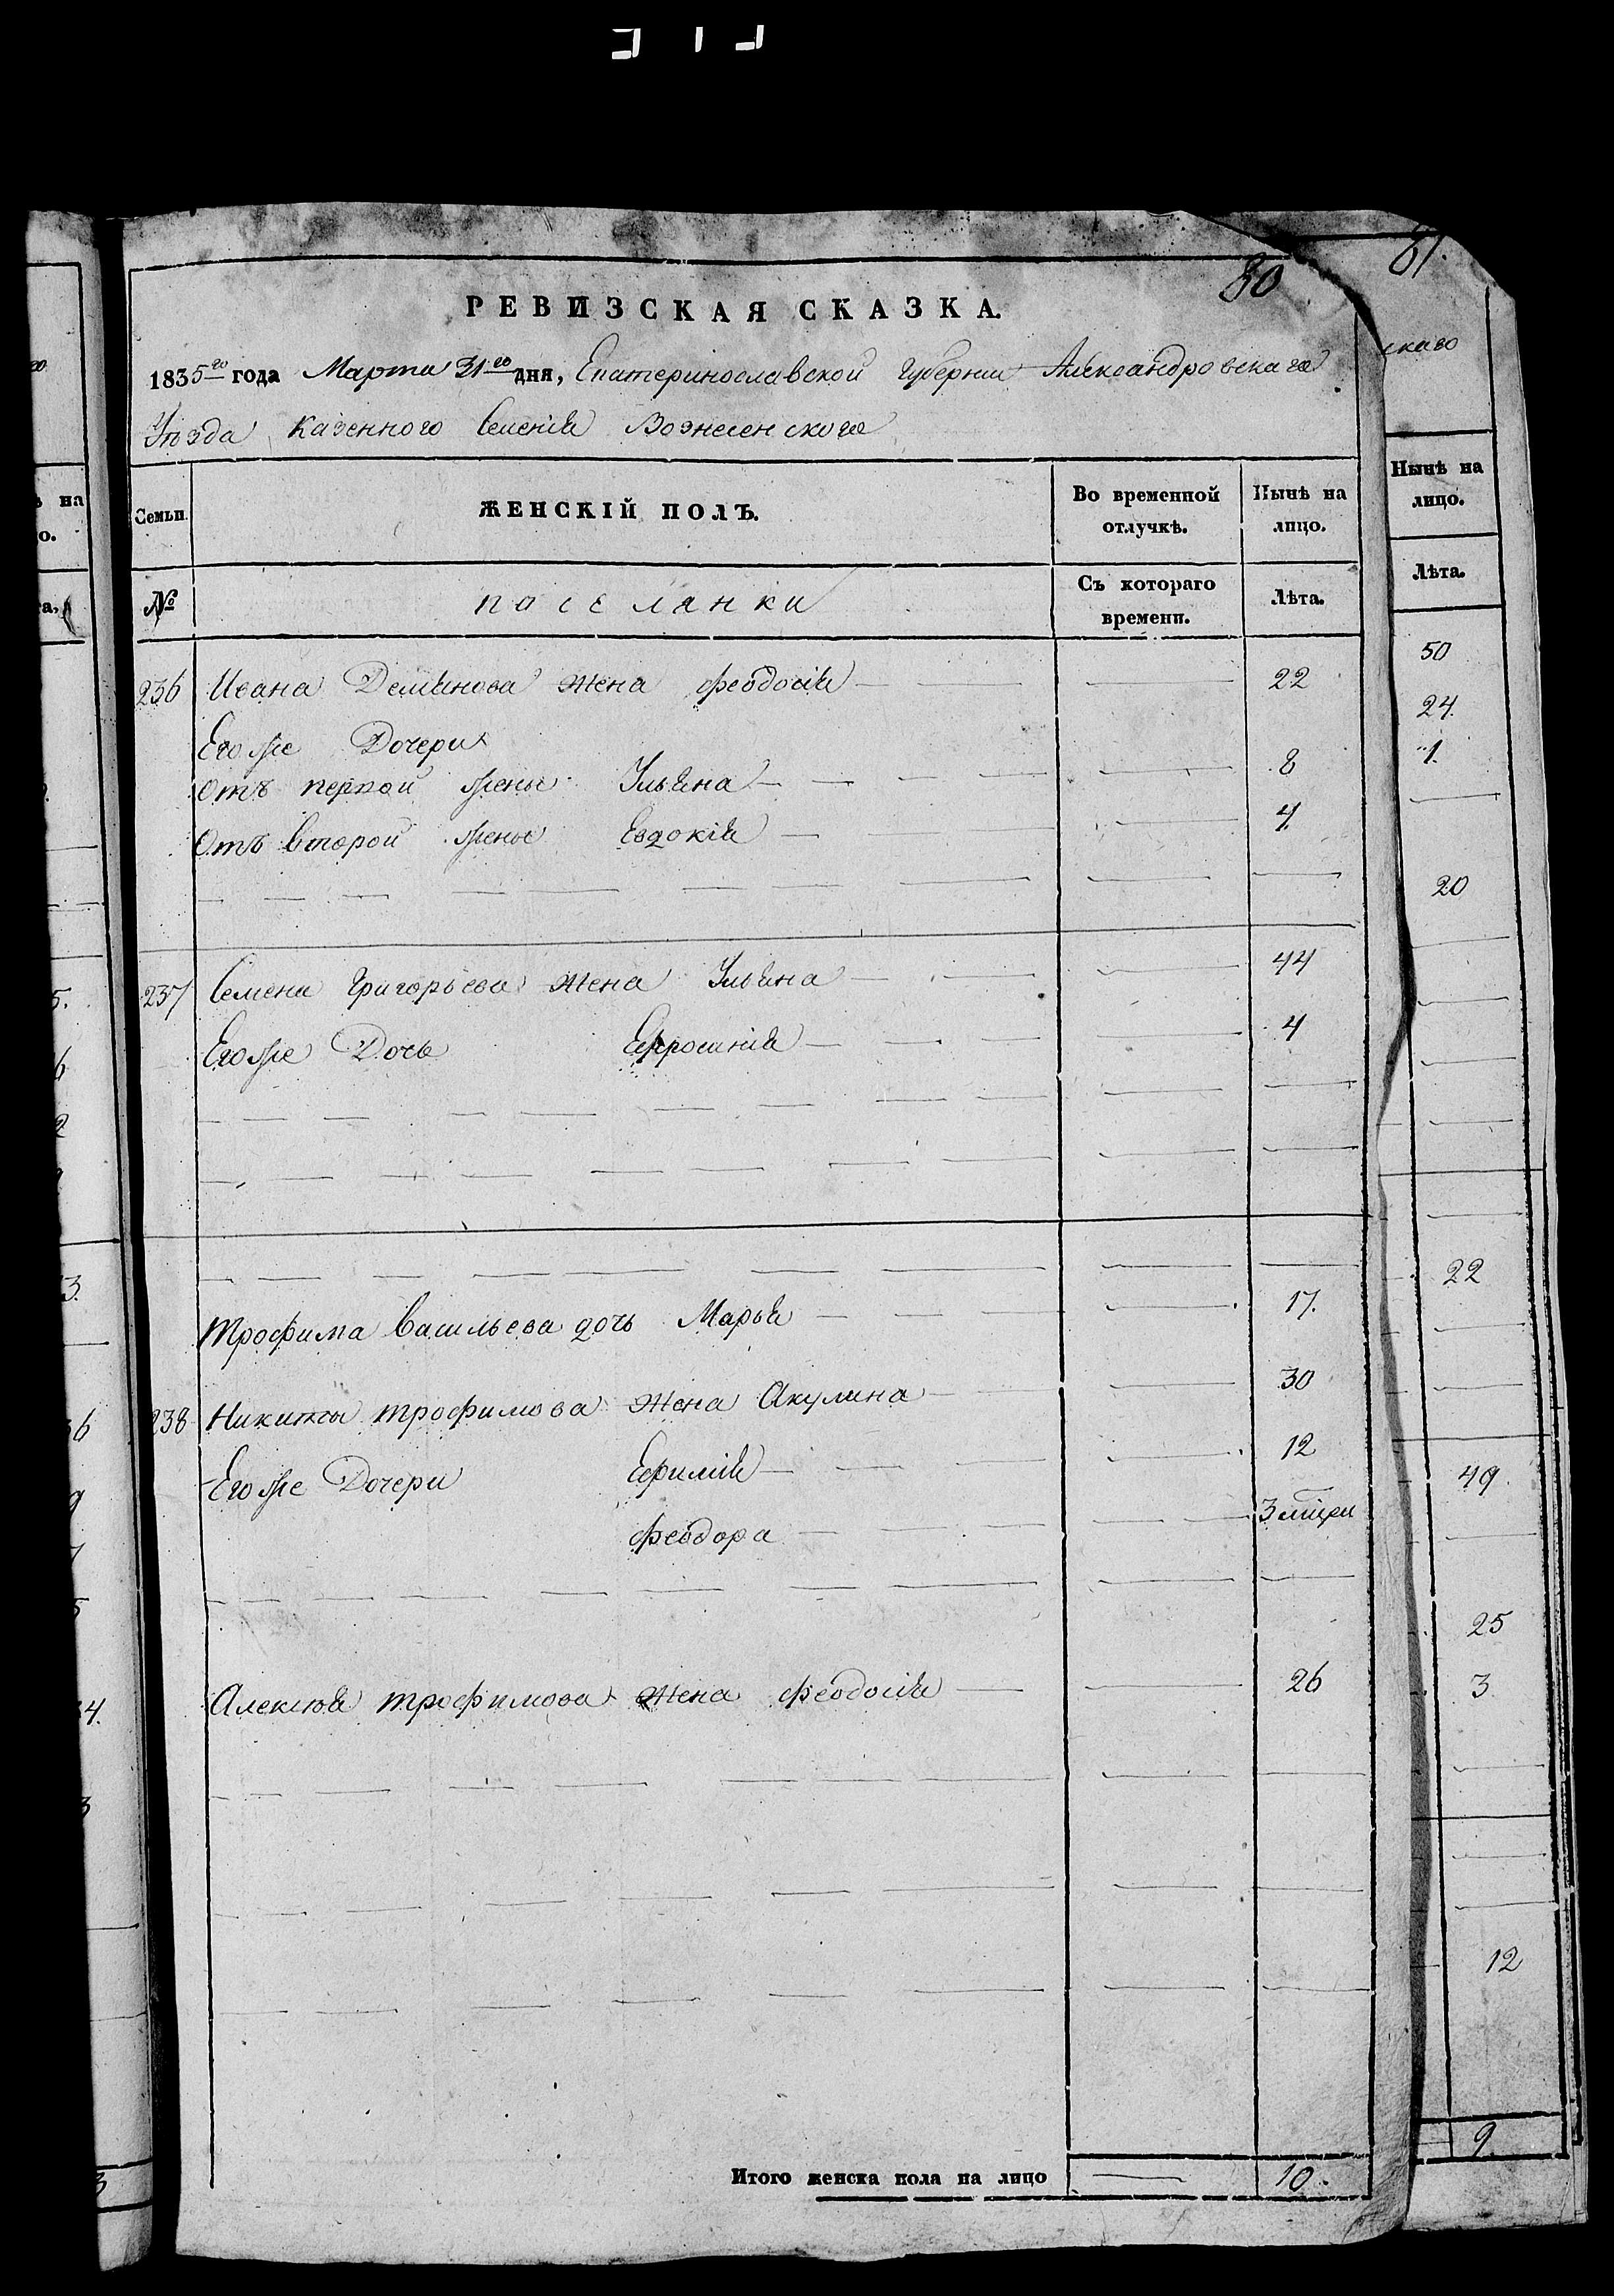 80
РЕВИЗСКАЯ СКАЗКА.
1835го года Марта 31го дня, Екатеринославской Губернии Александровскаго
Уезда Казенного Селенія Вознесенскаго
Семьи. ЖЕНСКІЙ ПОЛЪ. Во временной отлучкѣ. Нынѣ на лицо.
№ поселянки Съ котораго времени. Лѣта.
236 Ивана Демянова жена Феодосія 22
Его же Дочери
отъ первой жены Ульяна 8
отъ второй жены Евдокія 4
237 Семена Григорьева жена Ульяна 44
Его же Дочь Ефросинія 4
Трофима Васильева дочь Марья 17.
238 Никиты Трофимова жена Акулина 30
Его же Дочери Ефимія 12
Феодора 3
Алексея Трофимова жена Феодосія 26
Итого женска пола на лицо 10.
61.
скаго
Нынѣ на
лицо.
Лѣта.
50
24.
1.
20
22
49.
25
3
12
9.